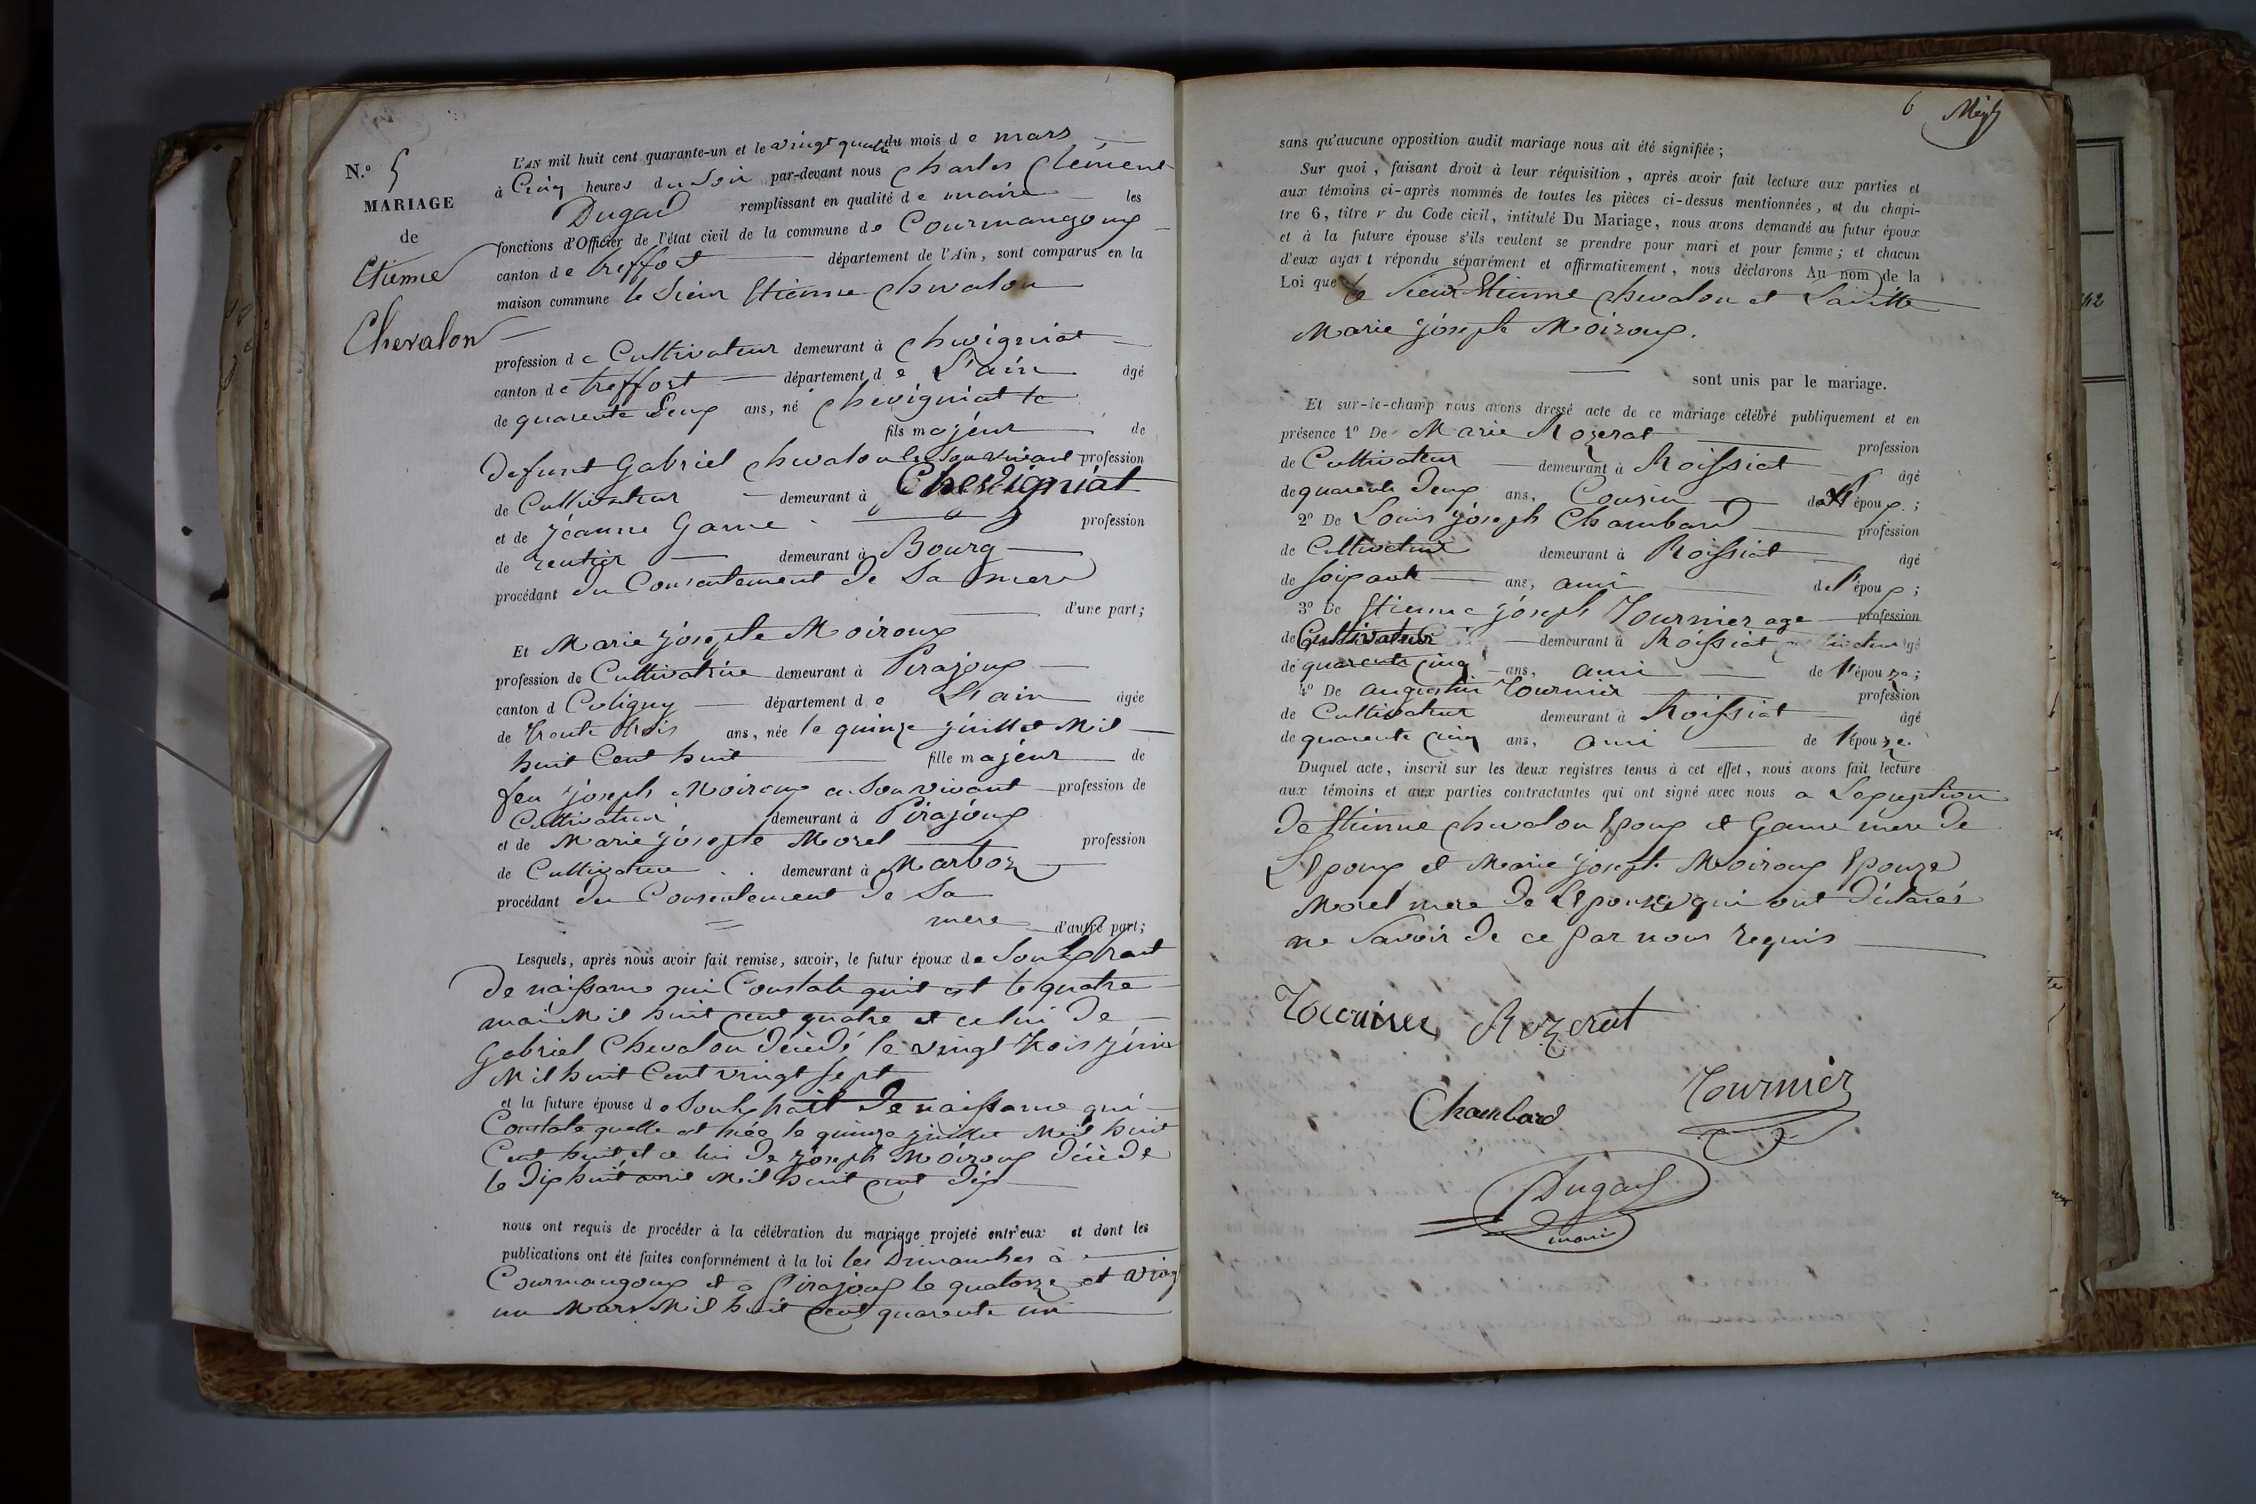 N.° 5
MARIAGE
de
Etienne
Chevalon
L'AN mil huit cent quarante-un et le vingt quatre du mois de mars
à Cinq heures du Soir par-devant nous Charles Clément
Dugad remplissant en qualité de maire les
fonctions d'Officier de l'état civil de la commune de Courmangoux
canton de treffort département de l'Ain, sont comparus en la
maison commune le Sieur Etienne Chevalon
profession de Cultivateur demeurant à Chevigniat
canton de treffort département de L'ain âgé
de quarente Deux ans, né Chevigniat le
fils majeur de
Defunt Gabriel Chevalon en Son vivant profession
de Cultivateur demeurant à Chevigniat
et de Jeanne Game profession
de rentier demeurant à Bourg
procédant du Consentement de Sa mere
d'une part;
Et Marie Josephe Moiroux
profession de Cultivatrice demeurant à Pirajoux
canton d Coligny département de L'ain âgée
de Trente trois ans, née le quinze juillet Mil
huit Cent huit fille majeur de
feu Joseph Moiroux en Son vivant profession de
Cultivateur demeurant à Pirajoux
et de Marie Josephe Morel profession
de Cultivatrice demeurant à Marboz
procédant du Consentement de Sa
mere d'autre part;
Lesquels, après nous avoir fait remise, savoir, le futur époux de Son Extrait
De naissance qui Constate quil est le quatre
mai Mil huit Cent quatre et celui De
Gabriel Chevalon Décedé le vingt trois
Mil huit Cent vingt Sept
et la future épouse de Son Extrait De naissance qui
Constate quelle est née le quinze juillet Mil huit
Cent huit et ce lui De Joseph Moiroux Décède
le Dix huit avril Mil huit cent dix
nous ont requis de procéder à la célébration du mariage projeté entr'eux et dont les
publications ont été faites conformément à la loi les Dimanches à
Courmangoux et a Pirajoux le quatorze et vingt
un Mars Mil huit Cent quarente un
6
sans qu'aucune opposition audit mariage nous ait été signifiée;
Sur quoi, faisant droit à leur réquisition, après avoir fait lecture aux parties et
aux témoins ci-après nommés de toutes les pièces ci-dessus mentionnées, et du chapi-
tre 6, titre v du Code civil, intitulé Du Mariage, nous avons demandé au futur époux
et à la future épouse s'ils veulent se prendre pour mari et pour femme; et chacun
d'eux ayant répondu séparément et affirmativement, nous déclarons Au nom de la
Loi que le Sieur Etienne Chevalon et Laditte
Marie Joseph Moiroux.
sont unis par le mariage.
Et sur-le-champ nous avons dressé acte de ce mariage célébré publiquement et en
présence 1° De Marie Rozerat profession
de Cultivateur demeurant à Roissiat âgé
de quarente Deux ans, Cousin de l'époux;
2° De Louis Joseph Chambard profession
de Cultivateur demeurant à Roissiat âgé
de soixante ans, ami de l'époux;
3° De Etienne Joseph Tournier age profession
de Cultivateur demeurant à Roissiat âgé
de quarente cinq ans, ami de l'épouze;
4° De augustin Tournier profession
de Cultivateur demeurant à Roissiat âgé
de quarente cinq ans, ami de l'épouze.
Duquel acte, inscrit sur les deux registres tenus à cet effet, nous avons fait lecture
aux témoins et aux parties contractantes qui ont signé avec nous a Lexception
De Etienne Chevalon Epoux et Game mere De
L'Epoux et Marie Joseph Moiroux Epouze
Morel mere De L'Epouze qui ont Déclarés
ne Savoir De ce par nous requis
Tournier Rozerat
Chambard Tournier
Dugad
maire